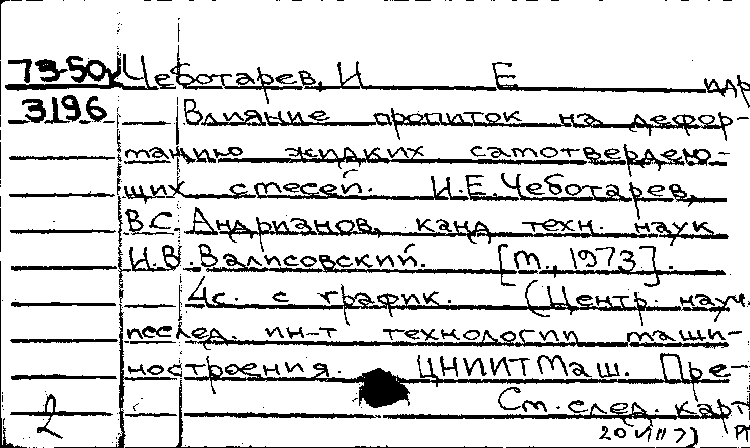 73-50к Чеботарев, И Е идр
3196 Влияние пропиток на дефор-
мацию жидких самотвердею-
щих смесей. И.Е. Чеботарев,
В.С. Андрианов, канд техн. наук
И.В. Валисовский. [М., 1973].
4с. с график. (Центр. науч.
исслед. ин-т технологии маши-
ностроения. ЦНИИТМаш. Пре-
См. след. карт
2 20 VIII 73